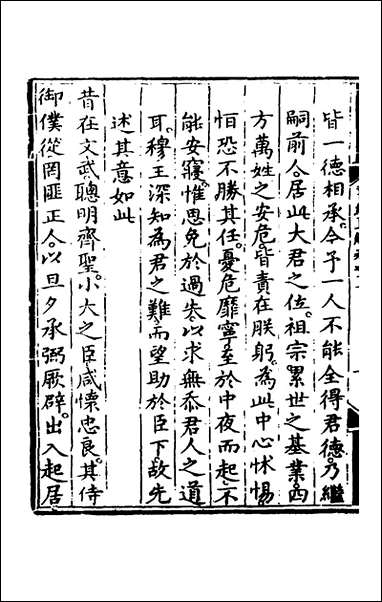 皆一德相承。今予一人不能全得君德。乃繼
嗣前人居此大君之位。祖宗累世之基業。四
方萬姓之安危皆責在朕躬。為此中心怵惕
恒恐不勝其任。憂危靡寧。至於中夜而起。不
能安寢。惟思免於過失。以求無忝君人之道
耳。穆王深知為君之難。而望助於臣下。故先
述其意如此
昔在文武聰明齊聖。小大之臣。咸懷忠良。其侍
御僕從罔匪正人。以旦夕承弼厥辟。出入起居